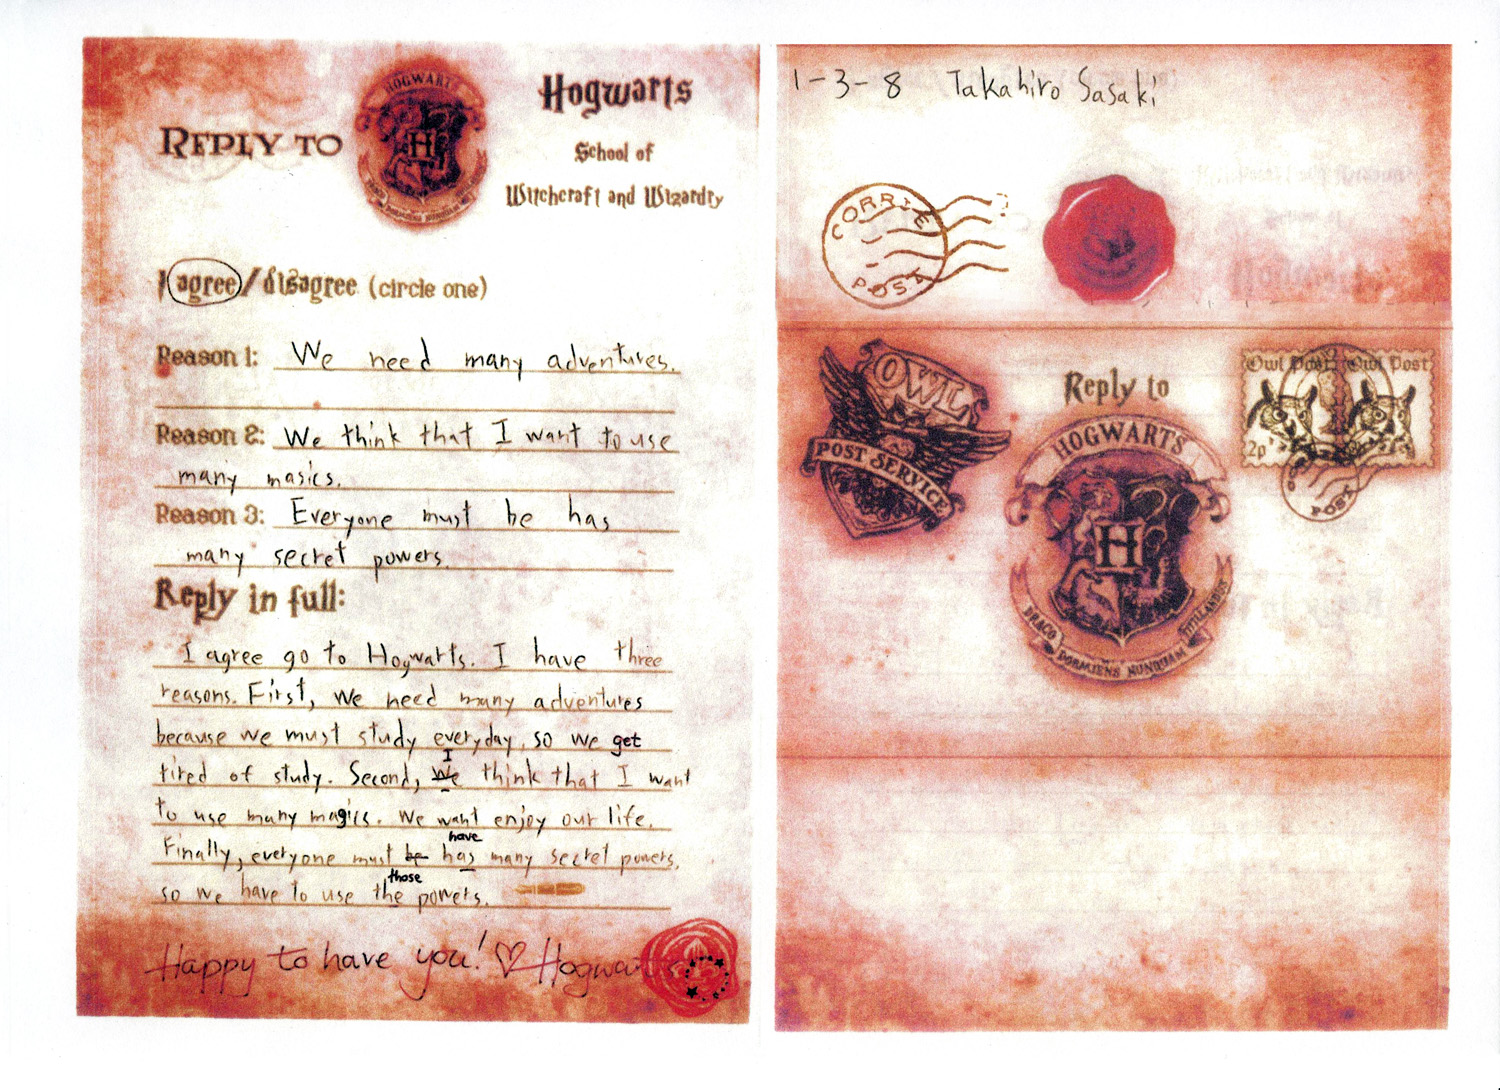 REPLY TO
HOGWARTS
H
DRACO DORMIENS NUNQUAM
Hogwarts
School of
Witchcraft and Wizardry
I agree / disagree (circle one)
Reason 1: We need many adventures.
Reason 2: We think that I want to use
many masics.
Reason 3: Everyone must be has
many secret powers.
Reply in full:
I agree go to Hogwarts. I have three
reasons. First, we need many adventures
because we must study everyday, so we get
tired of study. Second, We I think that I want
to use many magics. We want enjoy our life.
Finally, everyone must be has have many secret powers,
so we have to use the those powers.
Happy to have you! ♡ Hogwarts
1-3-8 Takahiro Sasaki
CORRIE
POSTA
OWL
POST SERVICE
Reply to
HOGWARTS
H
DRACO DORMIENS NUNQUAM TITILLANDUS
Owl Post Owl Post
2p
POSTA